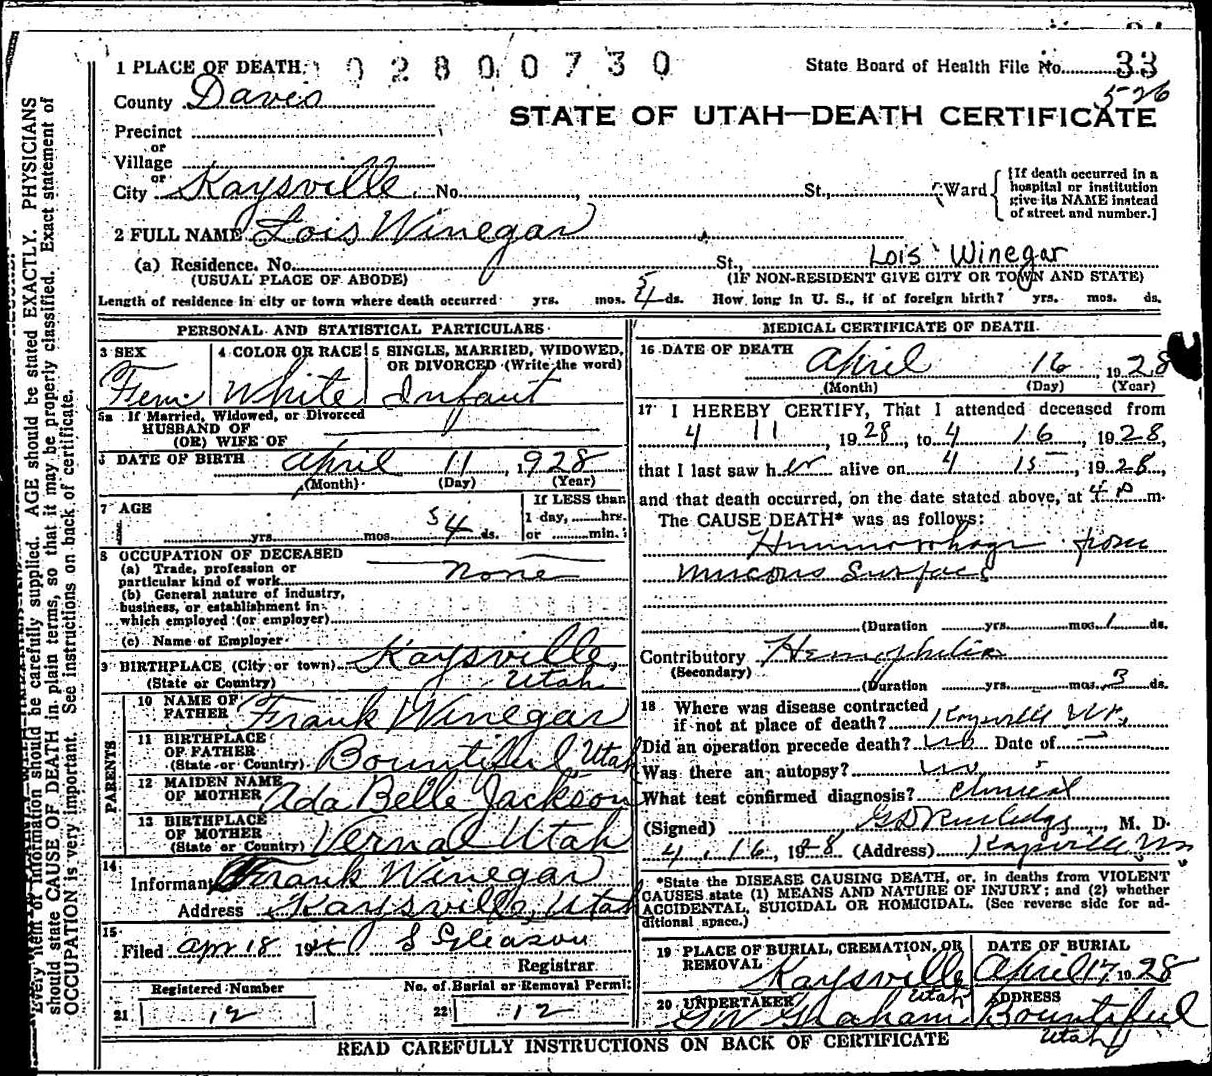 1 PLACE OF DEATH. 0 2 8 0 0 7 3 0 State Board of Health File No. 33
526
County Davis
STATE OF UTAH—DEATH CERTIFICATE
Precinct
or
Village
or
City Kaysville. No. , St., Ward
[If death occurred in a hospital or institution give its NAME instead of street and number.]
2 FULL NAME Lois Winegar
Lois Winegar
(a) Residence. No. St.,
(USUAL PLACE OF ABODE) (IF NON-RESIDENT GIVE CITY OR TOWN AND STATE)
Length of residence in city or town where death occurred yrs. mos. 5 4 ds. How long in U. S., if of foreign birth? yrs. mos. ds.
PERSONAL AND STATISTICAL PARTICULARS
3 SEX 4 COLOR OR RACE 5 SINGLE, MARRIED, WIDOWED,
OR DIVORCED (Write the word)
Fem White Infant
5a If Married, Widowed, or Divorced
HUSBAND OF
(OR) WIFE OF
6 DATE OF BIRTH April 11, 1928
(Month) (Day) (Year)
7 AGE If LESS than
yrs. mos. 5 4 ds. 1 day, hrs.
or min.
8 OCCUPATION OF DECEASED
(a) Trade, profession or
particular kind of work none
(b) General nature of industry,
business, or establishment in
which employed (or employer)
(c) Name of Employer
9 BIRTHPLACE (City or town) Kaysville,
(State or Country) Utah
PARENTS
10 NAME OF
FATHER Frank Winegar
11 BIRTHPLACE
OF FATHER
(State or Country) Bountiful Utah
12 MAIDEN NAME
OF MOTHER Ada Belle Jackson
13 BIRTHPLACE
OF MOTHER
(State or Country) Vernal Utah
14
Informant Frank Winegar
Address Kaysville, Utah
15
Filed Apr 18 19 S Gleason
Registrar
Registered Number No. of Burial or Removal Permit
21 12 22 12
MEDICAL CERTIFICATE OF DEATH.
16 DATE OF DEATH
April 16 1928
(Month) (Day) (Year)
17 I HEREBY CERTIFY, That I attended deceased from
4 11, 1928, to 4 16, 1928,
that I last saw her alive on 4 15, 1928,
and that death occurred, on the date stated above, at 4 P m.
The CAUSE DEATH* was as follows:
Hummorrhage from
mucous surfaces
(Duration yrs. mos. 1 ds.
Contributory Hemophilia
(Secondary)
(Duration yrs. mos. 3 ds.
18 Where was disease contracted
if not at place of death? Kaysville Ut.
Did an operation precede death? no Date of
Was there an autopsy? no
What test confirmed diagnosis? Clinical
(Signed) G D Rutledge, M. D.
4, 16, 1928 (Address) Kaysville
*State the DISEASE CAUSING DEATH, or, in deaths from VIOLENT
CAUSES state (1) MEANS AND NATURE OF INJURY; and (2) whether
ACCIDENTAL, SUICIDAL OR HOMICIDAL. (See reverse side for ad-
ditional space.)
19 PLACE OF BURIAL, CREMATION, OR DATE OF BURIAL
REMOVAL Kaysville April 17 1928
Utah
20 UNDERTAKER ADDRESS
GW Graham Bountiful
Utah
READ CAREFULLY INSTRUCTIONS ON BACK OF CERTIFICATE
Every item of information should be carefully supplied. AGE should be stated EXACTLY. PHYSICIANS
should state CAUSE OF DEATH in plain terms, so that it may be properly classified. Exact statement of
OCCUPATION is very important. See instructions on back of certificate.